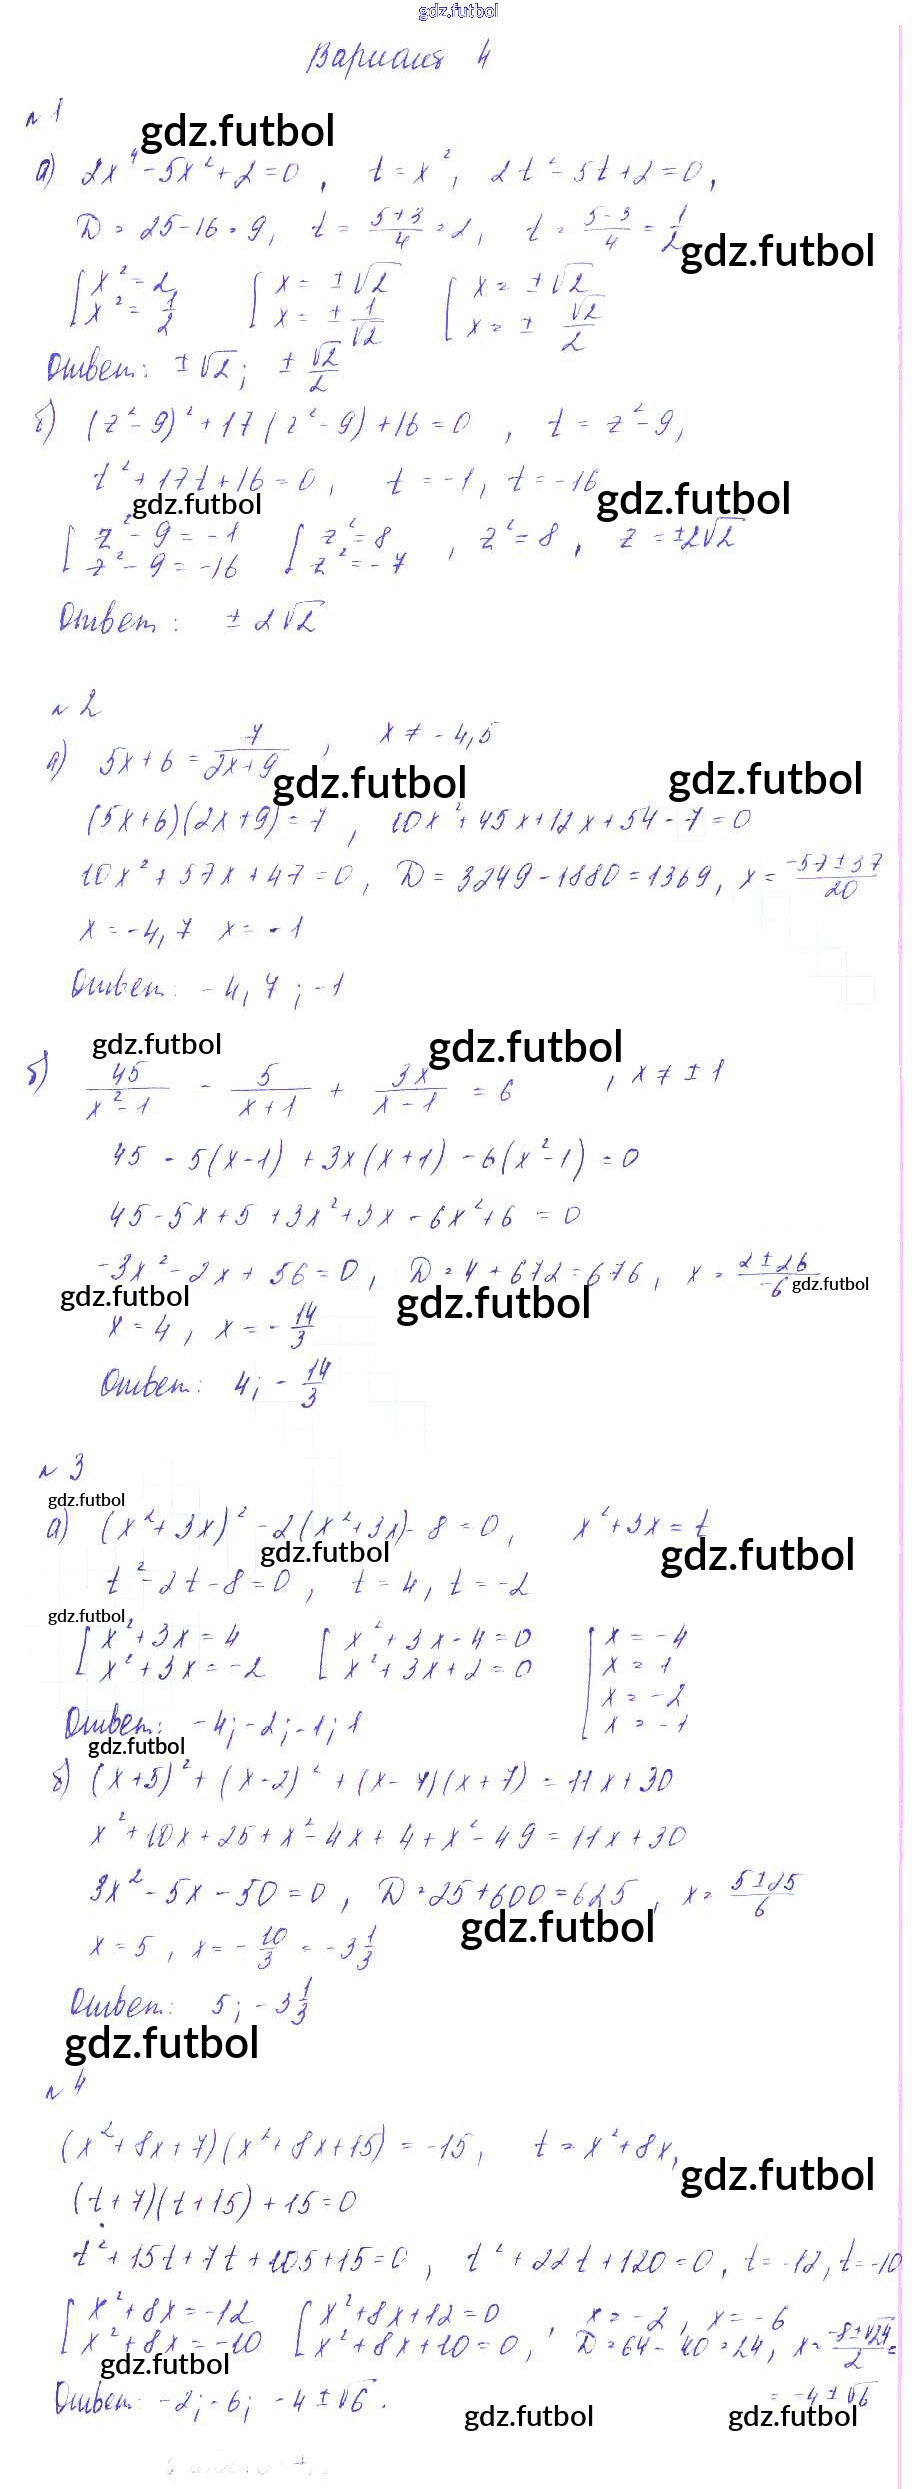 gdz.futbol
Вариант 4
n 1
gdz.futbol
а) 2x⁴ - 5x² + 2 = 0 , t = x² , 2t² - 5t + 2 = 0 ,
D = 25 - 16 = 9 , t = (5+3)/4 = 2 , t = (5-3)/4 = 1/2
gdz.futbol
[ x² = 2 [ x = ±√2 [ x = ±√2
x² = 1/2 x = ± 1/√2 x = ± √2/2
Ответ: ±√2 ; ± √2/2
б) (z² - 9)² + 17(z² - 9) + 16 = 0 , t = z² - 9 ,
t² + 17t + 16 = 0 , t = -1 , t = -16
gdz.futbol gdz.futbol
[ z² - 9 = -1 [ z² = 8 , z² = 8 , z = ±2√2
z² - 9 = -16 z² = -7
Ответ: ± 2√2
n 2
а) 5x + 6 = 7/(2x+9) , x ≠ -4,5
gdz.futbol gdz.futbol
(5x+6)(2x+9) = 7 , 10x² + 45x + 12x + 54 - 7 = 0
10x² + 57x + 47 = 0 , D = 3249 - 1880 = 1369 , x = (-57±37)/20
x = -4,7 x = -1
Ответ: -4,7 ; -1
gdz.futbol gdz.futbol
б) 45/(x²-1) - 5/(x+1) + 3x/(x-1) = 6 , x ≠ ±1
45 - 5(x-1) + 3x(x+1) - 6(x²-1) = 0
45 - 5x + 5 + 3x² + 3x - 6x² + 6 = 0
-3x² - 2x + 56 = 0 , D = 4 + 672 = 676 , x = (2±26)/-6
gdz.futbol gdz.futbol gdz.futbol
x = 4 , x = - 14/3
Ответ: 4; - 14/3
n 3
gdz.futbol
а) (x² + 3x)² - 2(x² + 3x) - 8 = 0 , x² + 3x = t
gdz.futbol gdz.futbol
t² - 2t - 8 = 0 , t = 4 , t = -2
gdz.futbol
[ x² + 3x = 4 [ x² + 3x - 4 = 0 [ x = -4
x² + 3x = -2 x² + 3x + 2 = 0 x = 1
x = -2
x = -1
Ответ: -4; -2; -1; 1
gdz.futbol
б) (x+5)² + (x-2)² + (x-7)(x+7) = 11x + 30
x² + 10x + 25 + x² - 4x + 4 + x² - 49 = 11x + 30
3x² - 5x - 50 = 0 , D = 25 + 600 = 625 , x = (5±25)/6
gdz.futbol
x = 5 , x = - 10/3 = -3 1/3
Ответ: 5; -3 1/3
gdz.futbol
n 4
(x² + 8x + 7)(x² + 8x + 15) = -15 , t = x² + 8x ,
gdz.futbol
(t + 7)(t + 15) + 15 = 0
t² + 15t + 7t + 105 + 15 = 0 , t² + 22t + 120 = 0 , t = -12 , t = -10
[ x² + 8x = -12 [ x² + 8x + 12 = 0 , x = -2 , x = -6
x² + 8x = -10 x² + 8x + 10 = 0 , D = 64 - 40 = 24 , x = (-8±√24)/2 =
gdz.futbol
Ответ: -2; -6; -4 ± √6 . = -4 ± √6
gdz.futbol gdz.futbol